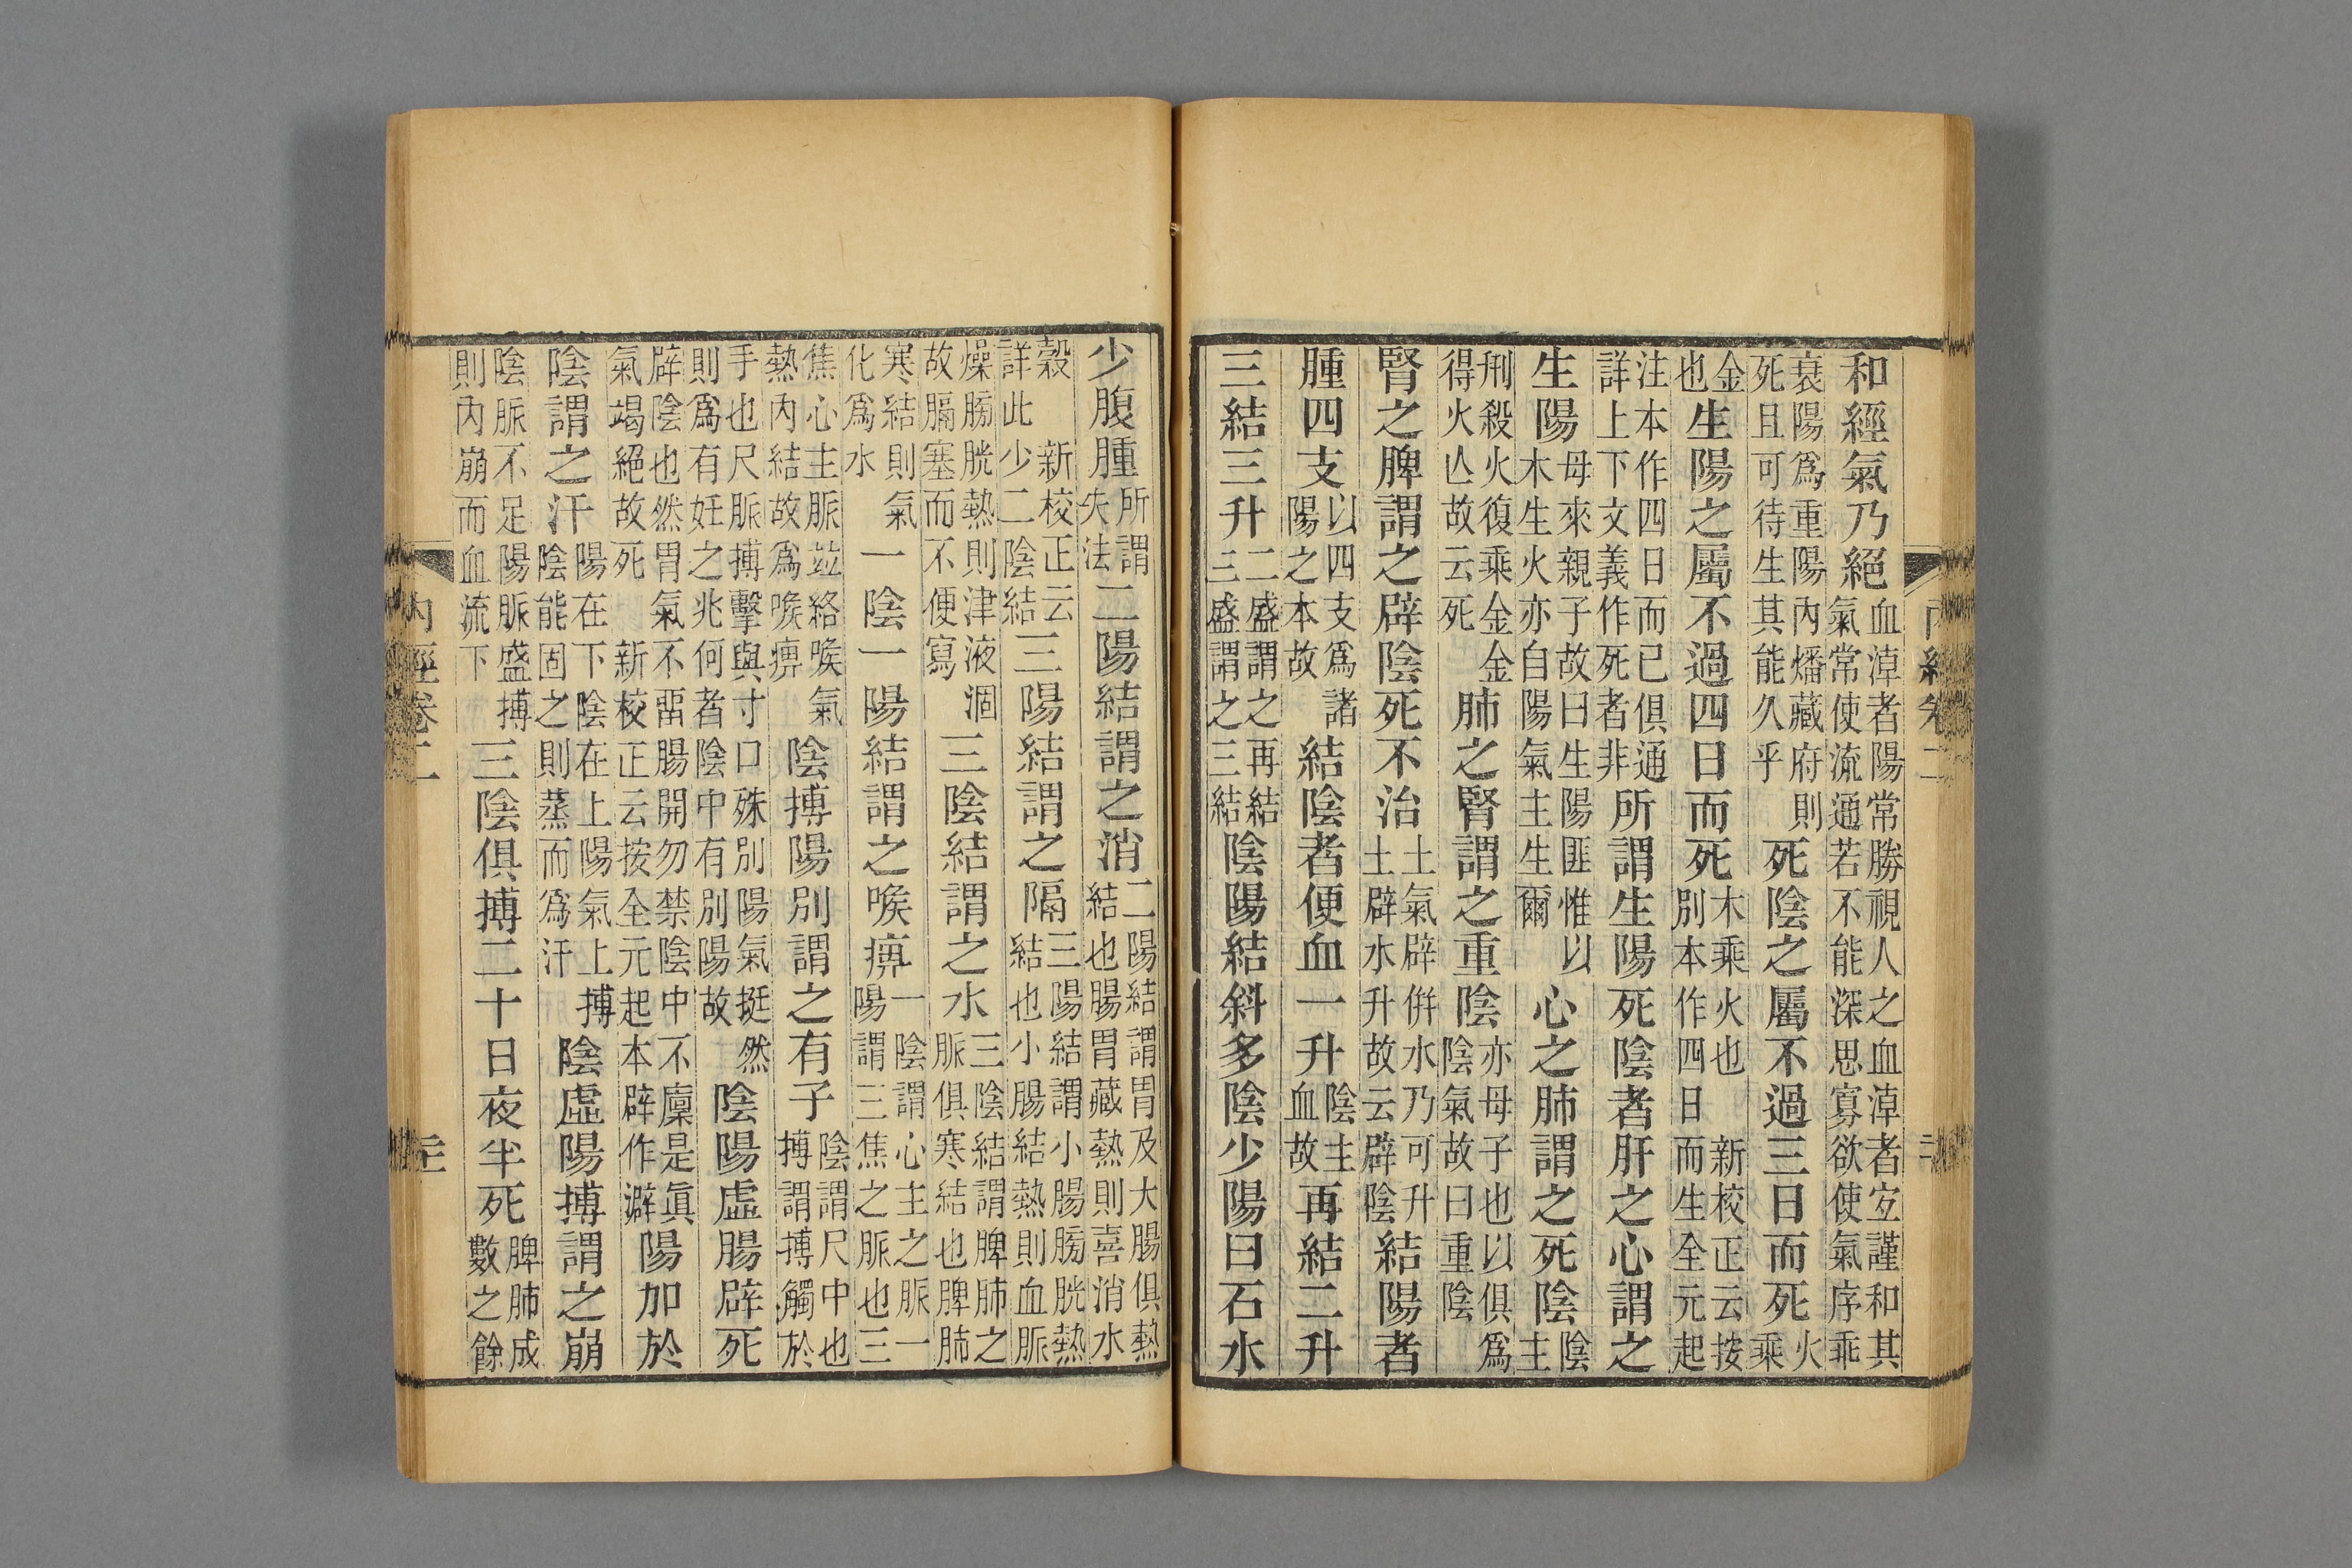 和經氣乃絕血淖者陽常勝視人之血淖者宐謹和其氣常使流通若不能深思寡欲使氣序乖
衰陽爲重陽內燔藏府則死且可待生其能久乎死陰之屬不過三日而死火乘
金也生陽之屬不過四日而死木乘火也新校正云按別本作四日而生全元起
注本作四日而已俱通詳上下文義作死者非所謂生陽死陰者肝之心謂之
生陽母來親子故曰生陽匪惟以木生火亦自陽氣主生爾心之肺謂之死陰陰主
刑殺火復乘金金得火亾故云死肺之腎謂之重陰亦母子也以俱爲陰氣故曰重陰
腎之脾謂之辟陰死不治土氣辟併水乃可升土辟水升故云辟陰結陽者
腫四支以四支爲諸陽之本故結陰者便血一升陰主血故再結二升
三結三升二盛謂之再結三盛謂之三結陰陽結斜多陰少陽曰石水
少腹腫所謂失法二陽結謂之消二陽結謂胃及大腸俱熱結也腸胃藏熱則喜消水
穀新校正云詳此少二陰結三陽結謂之隔三陽結謂小腸膀胱熱結也小腸結熱則血脈
燥膀胱熱則津液涸故膈塞而不便寫三陰結謂之水三陰結謂脾肺之脈俱寒結也脾肺
寒結則氣化爲水一陰一陽結謂之喉痹一陰謂心主之脈一陽謂三焦之脈也三
焦心主脈竝絡喉氣熱內結故爲喉痹陰搏陽別謂之有子陰謂尺中也搏謂搏觸於
手也尺脈搏擊與寸口殊別陽氣挺然則爲有妊之兆何者陰中有別陽故陰陽虛腸辟死
辟陰也然胃氣不畱腸開勿禁陰中不廩是眞氣竭絕故死新校正云按全元起本辟作澼陽加於
陰謂之汗陽在下陰在上陽氣上搏陰能固之則蒸而爲汗陰虛陽搏謂之崩
陰脈不足陽脈盛搏則內崩而血流下三陰俱搏二十日夜半死脾肺成數之餘
內經卷二